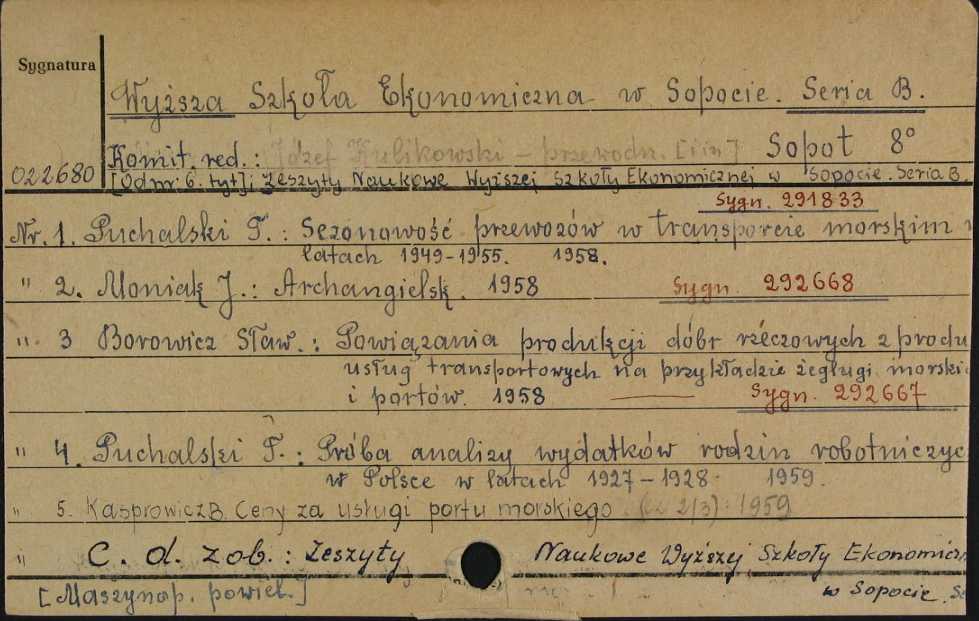 Sygnatura
Wyższa Szkoła Ekonomiczna w Sopocie. Seria B.
Komit. red.: Józef Kulikowski - przewodn. [i in.] Sopot 8°
022680 [Od nr: 6. tyt]: Zeszyty Naukowe Wyższej Szkoły Ekonomicznej w Sopocie. Seria B.
Sygn. 291833
Nr. 1. Puchalski T.: Sezonowość przewozów w transporcie morskim w
latach 1949-1955. 1958.
" 2. Moniak J.: Archangielsk. 1958 Sygn. 292668
" 3 Borowicz Sław.: Powiązania produkcji dóbr rzeczowych z produ
usług transportowych na przykładzie żeglugi morski
i portów. 1958 Sygn. 292667
" 4. Puchalski T.: Próba analizy wydatków rodzin robotniczyc
w Polsce w latach 1927-1928. 1959.
" 5. Kasprowicz B. Ceny za usługi portu morskiego. (cz 2/3). 1959
" C. d. zob.: Zeszyty Naukowe Wyższej Szkoły Ekonomiczn
[Maszynop. powiel.] w Sopocie. Se